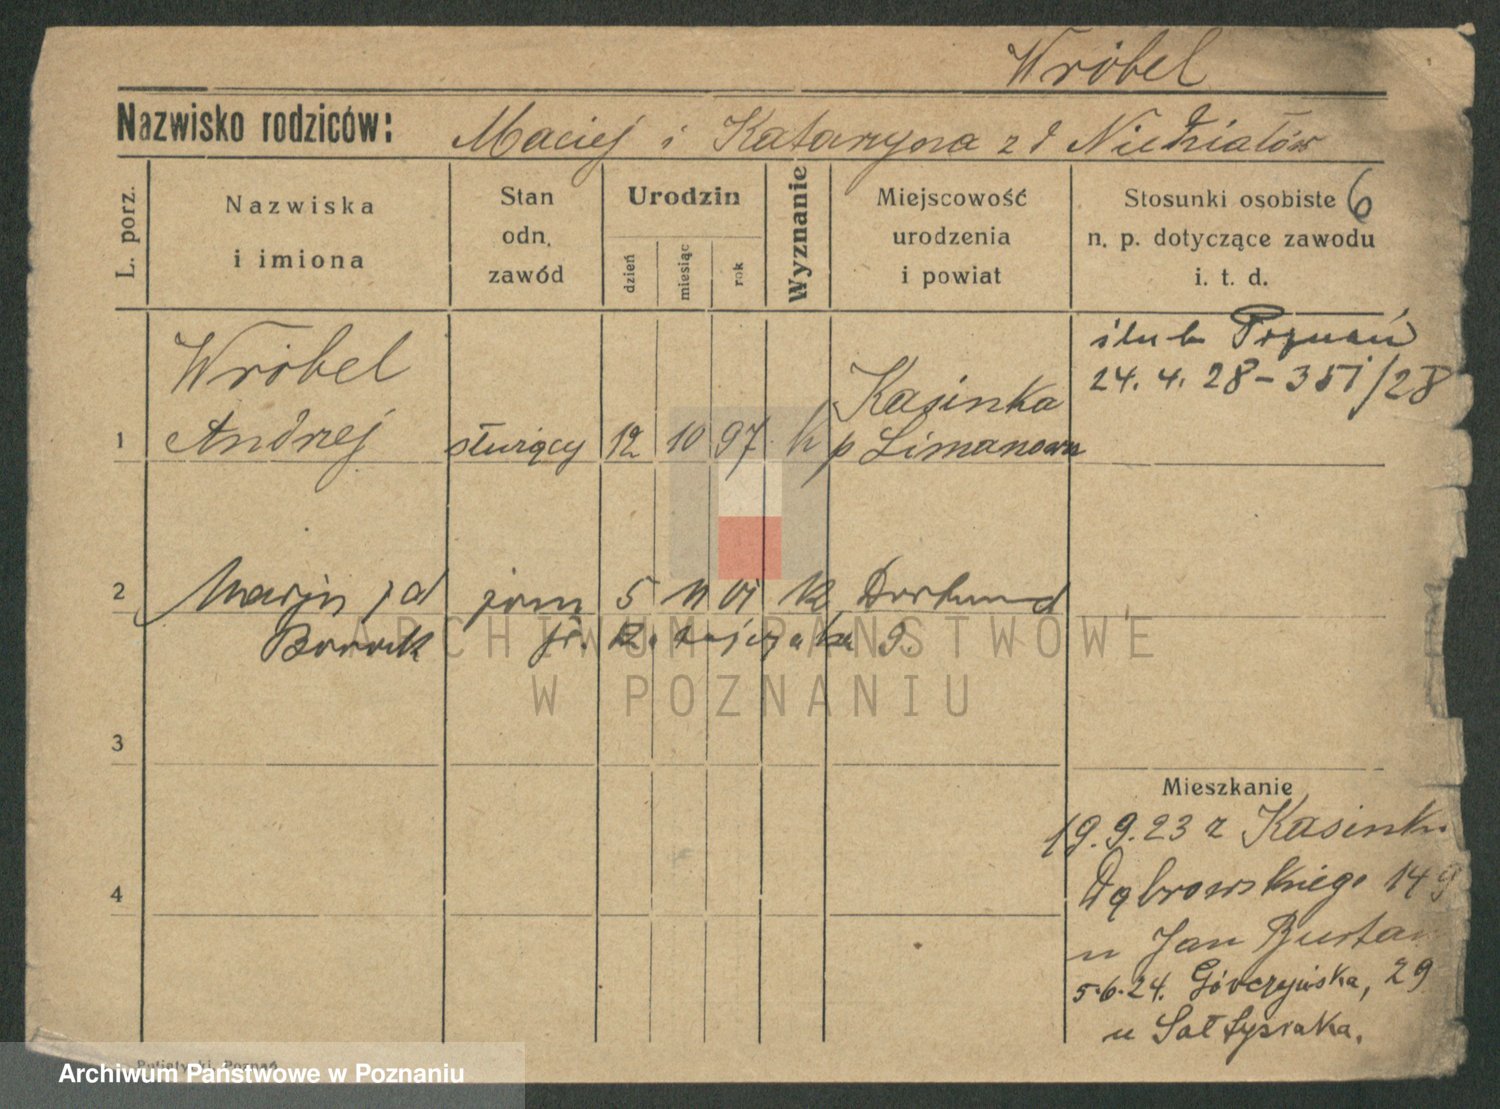 Wróbel
Nazwisko rodziców: Maciej i Katarzyna z d Niedziałów
L. porz.
Nazwiska
i imiona
Stan
odn.
zawód
Urodzin
dzień
miesiąc
rok
Wyznanie
Miejscowość
urodzenia
i powiat
Stosunki osobiste 6
n. p. dotyczące zawodu
i. t. d.
ślub Poznań
24. 4. 28 - 351/28
Wróbel
Kasinka
1 Andrzej służący 12 10 97 k p Limanowa
2 5 11 01 Dortmund
3
4
Mieszkanie
19.9.23 z Kasink
Dąbrowskiego 149
u Jan
5.6.24. Górczyńska, 29
u Sołtysiaka.
ARCHIWUM PAŃSTWOWE
W POZNANIU
Archiwum Państwowe w Poznaniu